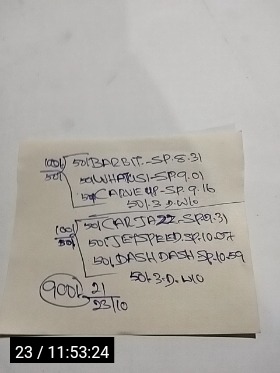 100/- 50/ BARBIT.-SP.8.31
50/ 50/ WHATUSI-SP.9.01
50/ CARVE UP-SP.9.16
50/.3.D.W/O
100/- 50/ CARJAZZ-SP.9.31
50/ 50/ JETSPEED.SP.10.07
50/ DASH DASH SP.10.59
50/.3.D.W/O
900/- 21
23/10
23 / 11:53:24